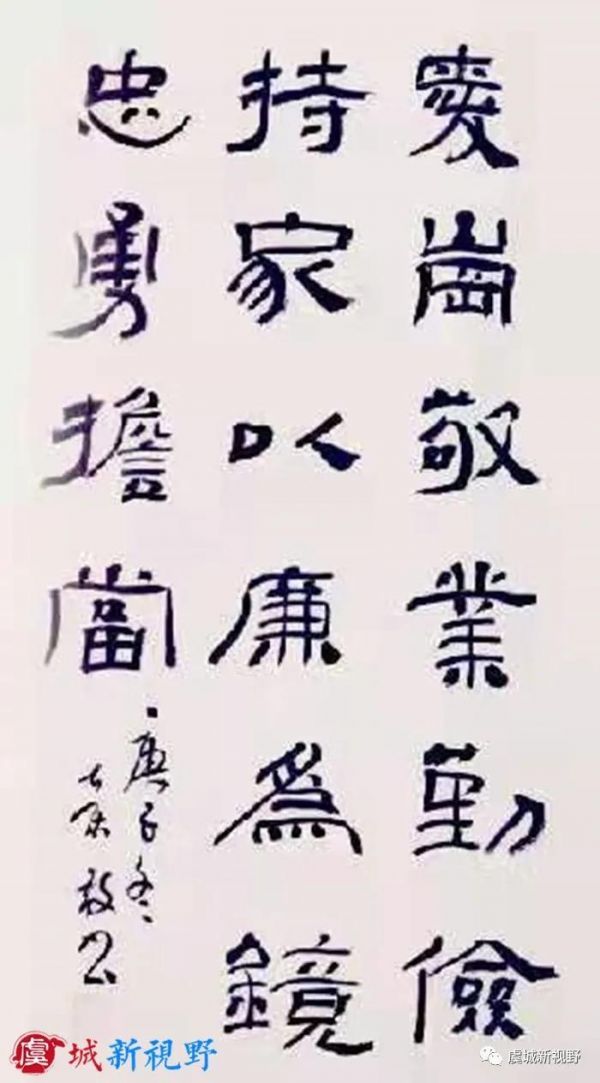 愛崗敬業勤儉
持家以廉為鏡
忠勇擔當
庚子冬
敬書
虞城新視野
虞城新视野